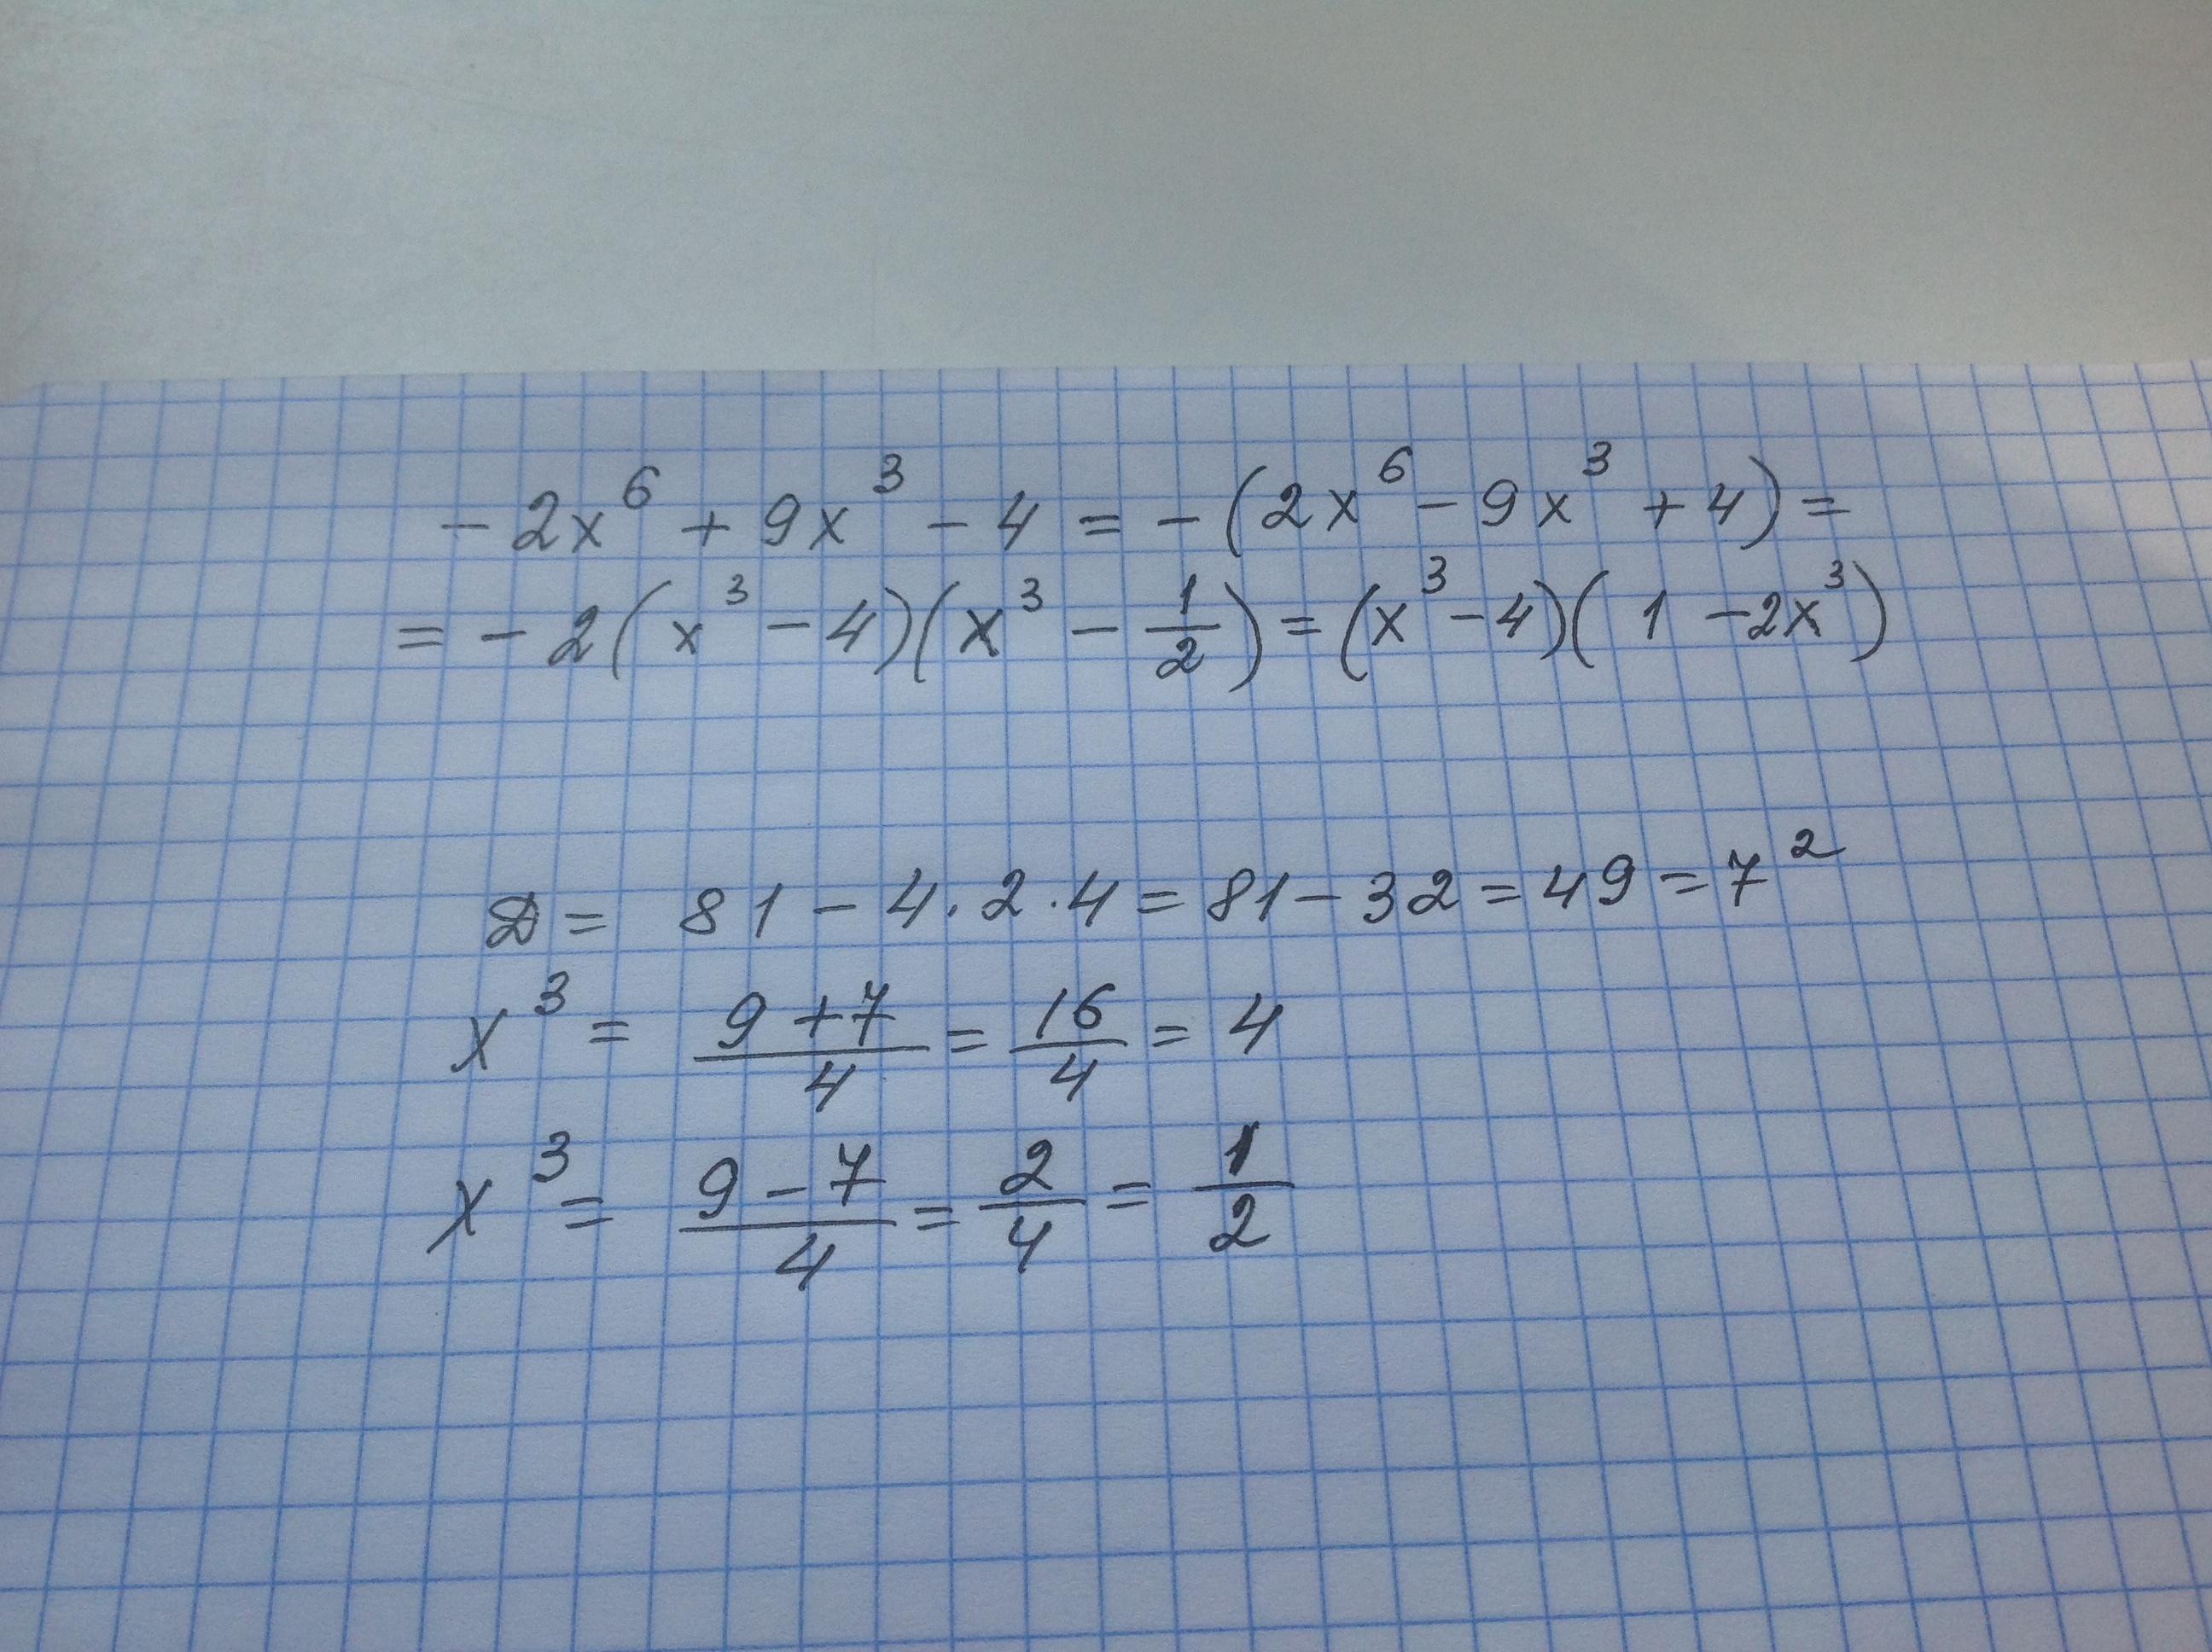 - 2x⁶ + 9x³ - 4 = - (2x⁶ - 9x³ + 4) =
= - 2(x³ - 4)(x³ - 1/2) = (x³ - 4)(1 - 2x³)
Д = 81 - 4 · 2 · 4 = 81 - 32 = 49 = 7²
x³ = (9 + 7)/4 = 16/4 = 4
x³ = (9 - 7)/4 = 2/4 = 1/2